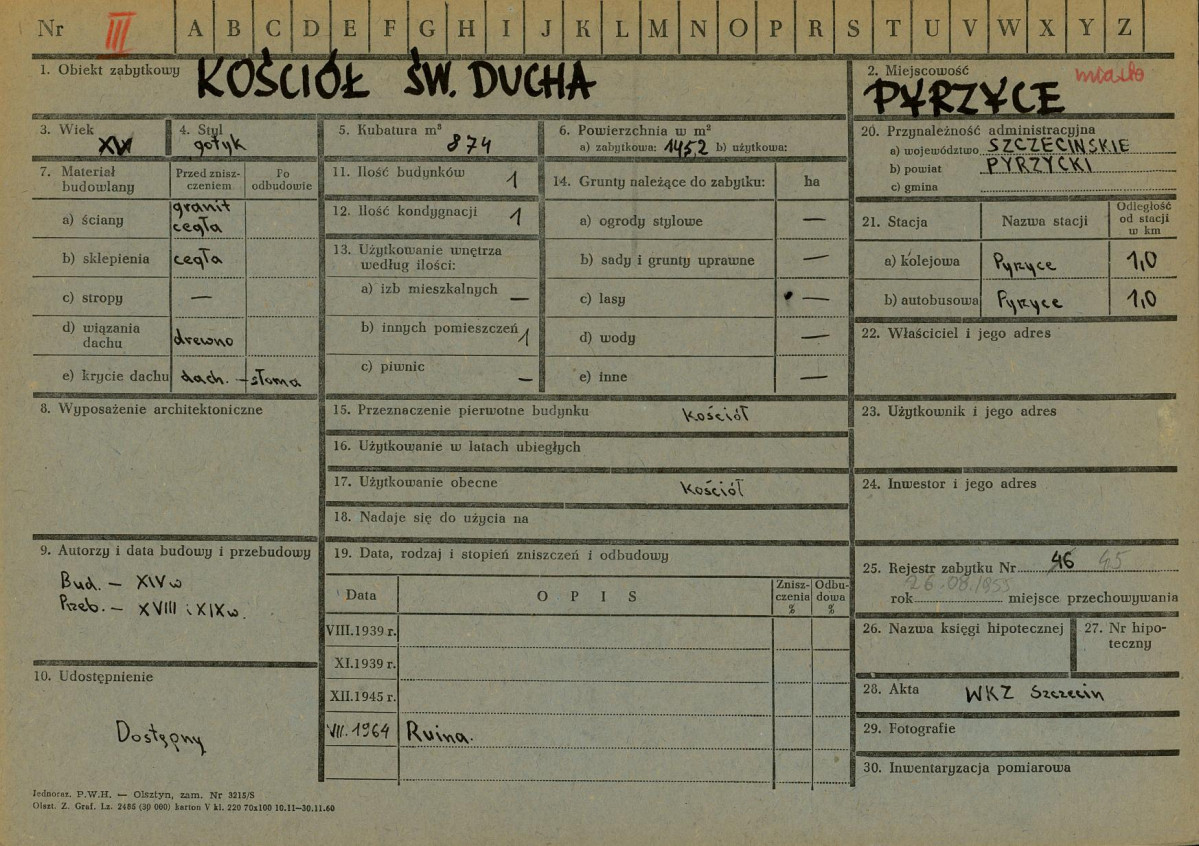 Nr III A B C D E F G H I J K L M N O P R S T U V W X Y Z
1. Obiekt zabytkowy KOŚCIÓŁ ŚW. DUCHA
2. Miejscowość miasto
PYRZYCE
3. Wiek
4. Styl
gotyk
5. Kubatura m³
874
6. Powierzchnia w m²
a) zabytkowa: 145,2 b) użytkowa:
20. Przynależność administracyjna
a) województwo SZCZECIŃSKIE
b) powiat PYRZYCKI
c) gmina
7. Materiał budowlany
Przed znisz-
czeniem
Po
odbudowie
a) ściany granit
cegła
b) sklepienia cegła
c) stropy —
d) wiązania
dachu drewno
e) krycie dachu dach. – słoma
11. Ilość budynków 1
12. Ilość kondygnacji 1
13. Użytkowanie wnętrza
według ilości:
a) izb mieszkalnych —
b) innych pomieszczeń 1
c) piwnic —
14. Grunty należące do zabytku: ha
a) ogrody stylowe —
b) sady i grunty uprawne —
c) lasy —
d) wody —
e) inne —
21. Stacja Nazwa stacji
Odległość
od stacji
w km
a) kolejowa Pyrzyce 1,0
b) autobusowa Pyrzyce 1,0
22. Właściciel i jego adres
8. Wyposażenie architektoniczne
15. Przeznaczenie pierwotne budynku kościół
16. Użytkowanie w latach ubiegłych
17. Użytkowanie obecne kościół
18. Nadaje się do użycia na
23. Użytkownik i jego adres
24. Inwestor i jego adres
9. Autorzy i data budowy i przebudowy
Bud. – XIV w
Przeb. – XVIII i XIX w.
10. Udostępnienie
Dostępny
19. Data, rodzaj i stopień zniszczeń i odbudowy
Data O P I S
Znisz-
czenia
%
Odbu-
dowa
%
VIII.1939 r.
XI.1939 r.
XII.1945 r.
VII. 1964 Ruina.
25. Rejestr zabytku Nr 46 45
26.08.1955
rok miejsce przechowywania
26. Nazwa księgi hipotecznej
27. Nr hipo-
teczny
28. Akta WKZ Szczecin
29. Fotografie
30. Inwentaryzacja pomiarowa
Jednoraz. P.W.H. — Olsztyn, zam. Nr 3215/S
Olszt. Z. Graf. Lz. 2486 (30 000) karton V kl. 220 70x100 10.11—30.11.60